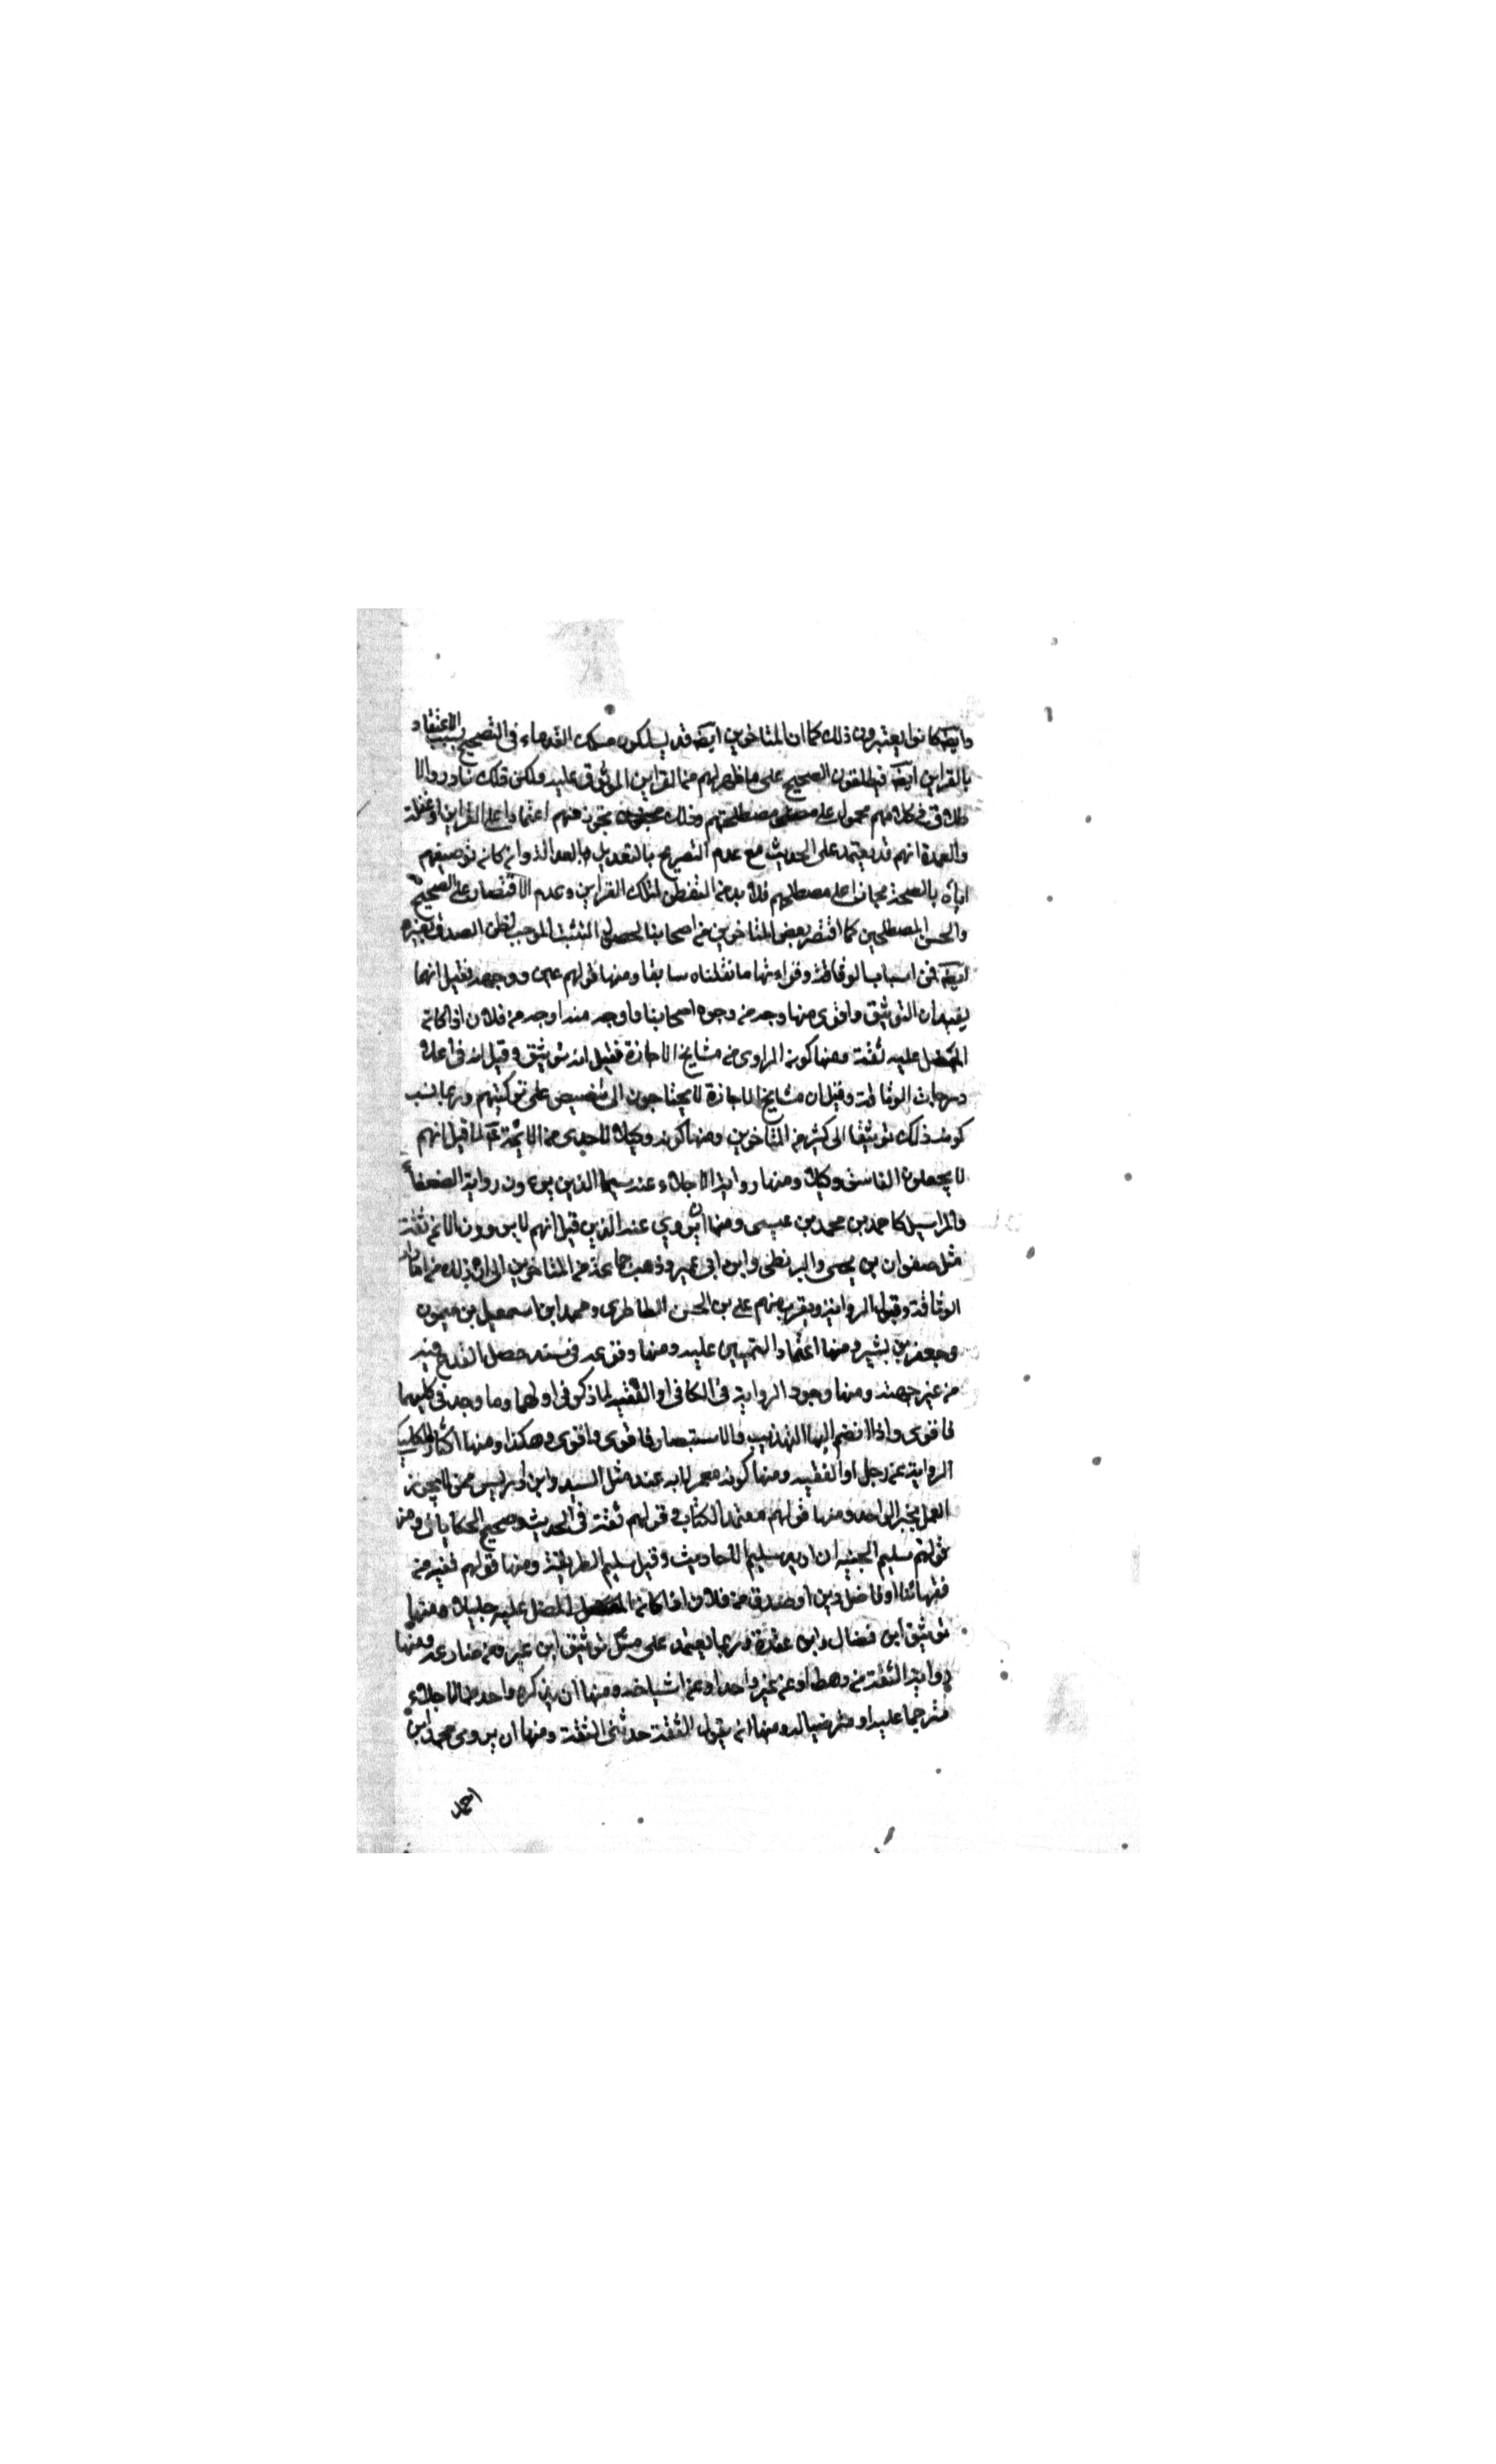 وايضا كانوا يعتبرون ذلك كما ان المتاخرين ايضا قد يسلكون مسلك القدماء في التصحيح بسبب الاعتقاد
بالقراين ايضا فيطلقون الصحيح على ما ظهر لهم من القراين الموثوق عليه ولكن ذلك نادر والا
طلاق في كلامهم محمول على مصطلحهم وذلك تجوز منهم اعتمادا على القراين او غفلة
والعمدة انهم قد يعتمد على الحديث مع عدم التصريح بالتعديل والعدالة وان كان توصيفهم
اياه بالصحة مجازا على مصطلحهم فلا بد من التفطن لتلك القراين وعدم الاقتصار على الصحيح
والحسن المصطلحين كما اقتصر بعض المتاخرين من اصحابنا لحصول التثبت الموجب لظن الصدق بغيره
ايضا فمن اسباب الوثاقة وقراءنها ما نقلناه سابقا ومنها قولهم عين ووجه فقيل انهما
يفيدان التوثيق واقوى منها وجه من وجوه اصحابنا واوجه منه اوجه من فلان اذا كان
المفضل عليه ثقة ومنها كون الراوي من مشايخ الاجازة فقيل انه توثيق وقيل انه في اعلا
درجات الوثاقة وقيل ان مشايخ الاجازة لا يحتاجون الى تنصيص على تزكيتهم وربما نسب
كونه ذلك توثيقا الى كثير من المتاخرين ومنها كونه وكيلا لاحدى من الائمة ع لما قيل انهم
لا يجعلون الفاسق وكيلا ومنها رواية الاجلاء عنه سيما الذين يردون رواية الضعفاء
والمراسيل كاحمد بن محمد بن عيسى ومنها ان يروي عنه الذين قيل انهم لا يروون الا عن ثقة
مثل صفوان بن يحيى والبزنطي وابن ابي عمير وذهب جماعة من المتاخرين الى ان ذلك من امارات
الوثاقة وقبول الرواية ويقرب منهم علي بن الحسن الطاطري ومحمد ابن اسمعيل بن ميمون
وجعفر بن بشير ومنها اعتماد القميين عليه ومنها وقوعه في سند حصل القدح فيه
من غير جهته ومنها وجود الرواية في الكافي او الفقيه لما ذكر في اولهما وما وجد في كليهما
فاقوى واذا انضم اليها التهذيب والاستبصار فاقوى واقوى وهكذا ومنها اكثار الكليني
الرواية عن رجل او الفقيه ومنها كونه معمولا به عند مثل السيد وابن ادريس ممن لا يجوز
العمل بخبر الواحد ومنها قولهم معتمد الكتاب وقولهم ثقة في الحديث وصحيح الحكايات ومنها
قولهم سليم الجنبة ان اريد سليم الاحاديث وقيل سليم الطريقة ومنها قولهم فقيه من
فقهائنا او فاضل دين او صدق من فلان اذا كان المفضل عليه جليلا ومنها
توثيق ابن فضال وابن عقدة وربما يعتمد على مثل توثيق ابن نمير ومن ضارعه ومنها
رواية الثقة من رهط او عن غير واحد او عن اشياخه ومنها ان يذكره واحد من الاجلاء
مترحما عليه او مترضيا له ومنها ان يقول الثقة حدثني الثقة ومنها ان يروي محمد ابن
احمد